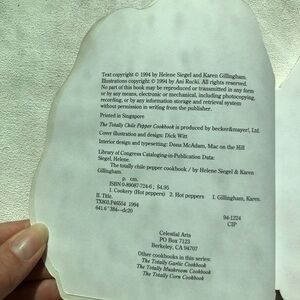 Text copyright © 1994 by Helene Siegel and Karen Gillingham.
Illustrations copyright © 1994 by Ani Rucki. All rights reserved.
No part of this book may be reproduced or transmitted in any form
or by any means, electronic or mechanical, including photocopying,
recording, or by any information storage and retrieval system
without permission in writing from the publisher.
Printed in Singapore
The Totally Chile Pepper Cookbook is produced by becker&mayer!, Ltd.
Cover illustration and design: Dick Witt
Interior design and typesetting: Dona McAdam, Mac on the Hill
Library of Congress Cataloging-in-Publication Data:
Siegel, Helene.
The totally chile pepper cookbook / by Helene Siegel & Karen
Gillingham.
p. cm.
ISBN 0-89087-724-6 : $4.95
1. Cookery (Hot peppers) 2. Hot peppers I. Gillingham, Karen
II. Title.
TX803.P46S54 1994
641.6'384—dc20 94-1224
CIP
Celestial Arts
PO Box 7123
Berkeley, CA 94707
Other cookbooks in this series:
The Totally Garlic Cookbook
The Totally Mushroom Cookbook
The Totally Corn Cookbook